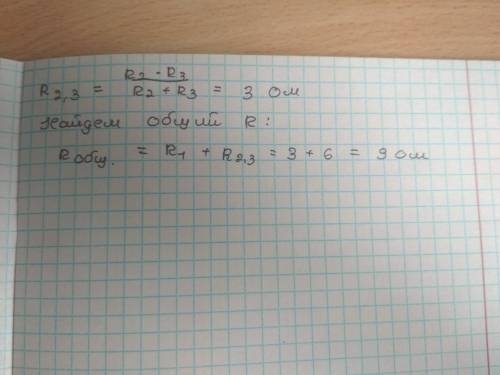 R2 · R3
R2,3 = R2 + R3 = 3 Ом
Найдем общий R:
Rобщ. = R1 + R2,3 = 3 + 6 = 9 Ом